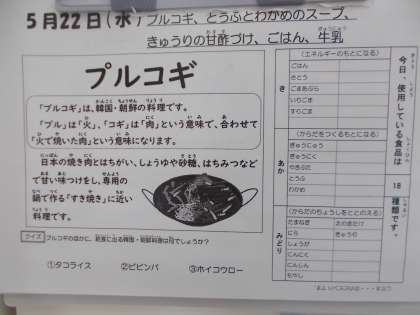 5月22日(水)プルコギ、とうふとわかめのスープ、
きゅうりの甘酢づけ、ごはん、牛乳
プルコギ
「プルコギ」は、韓国・朝鮮の料理です。
「プル」は「火」、「コギ」は「肉」という意味で、合わせて
「火で焼いた肉」という意味になります。
日本の焼き肉とはちがい、しょうゆや砂糖、はちみつなど
で甘い味つけをし、専用の
鍋で作る「すき焼き」に近い
料理です。
クイズ
プルコギのほかに、給食に出る韓国・朝鮮料理は何でしょうか?
①タコライス ②ビビンバ ③ホイコウロー
今日、使用している食品は
18
種類です。
き
(エネルギーのもとになる)
ごはん
さとう
ごまあぶら
いりごま
すりごま
あか
(からだをつくるもとになる)
ぎゅうにゅう
ぎゅうにく
やきぶた
とうふ
わかめ
みどり
(からだのちょうしをととのえる)
たまねぎ
えのきたけ
にら
きゅうり
しょうが
にんにく
にんじん
もやし